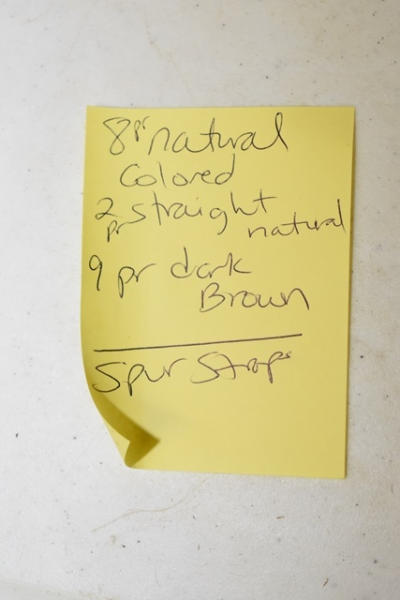 8pr natural
Colored
2 pr straight
natural
9 pr dark
Brown
Spur Straps